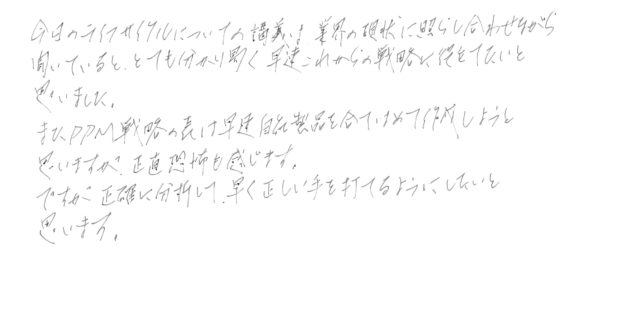 今日のライフサイクルについての講義は業界の現状に照らし合わせながら
聞いていると、とても分かり易く早速これからの戦略に役立てたいと
思いました。
またPPM戦略の表は早速自社製品を当てはめて作成しようと
思いますが、正直恐怖も感じます。
ですが正確に分析して、早く正しい手を打てるようにしたいと
思います。